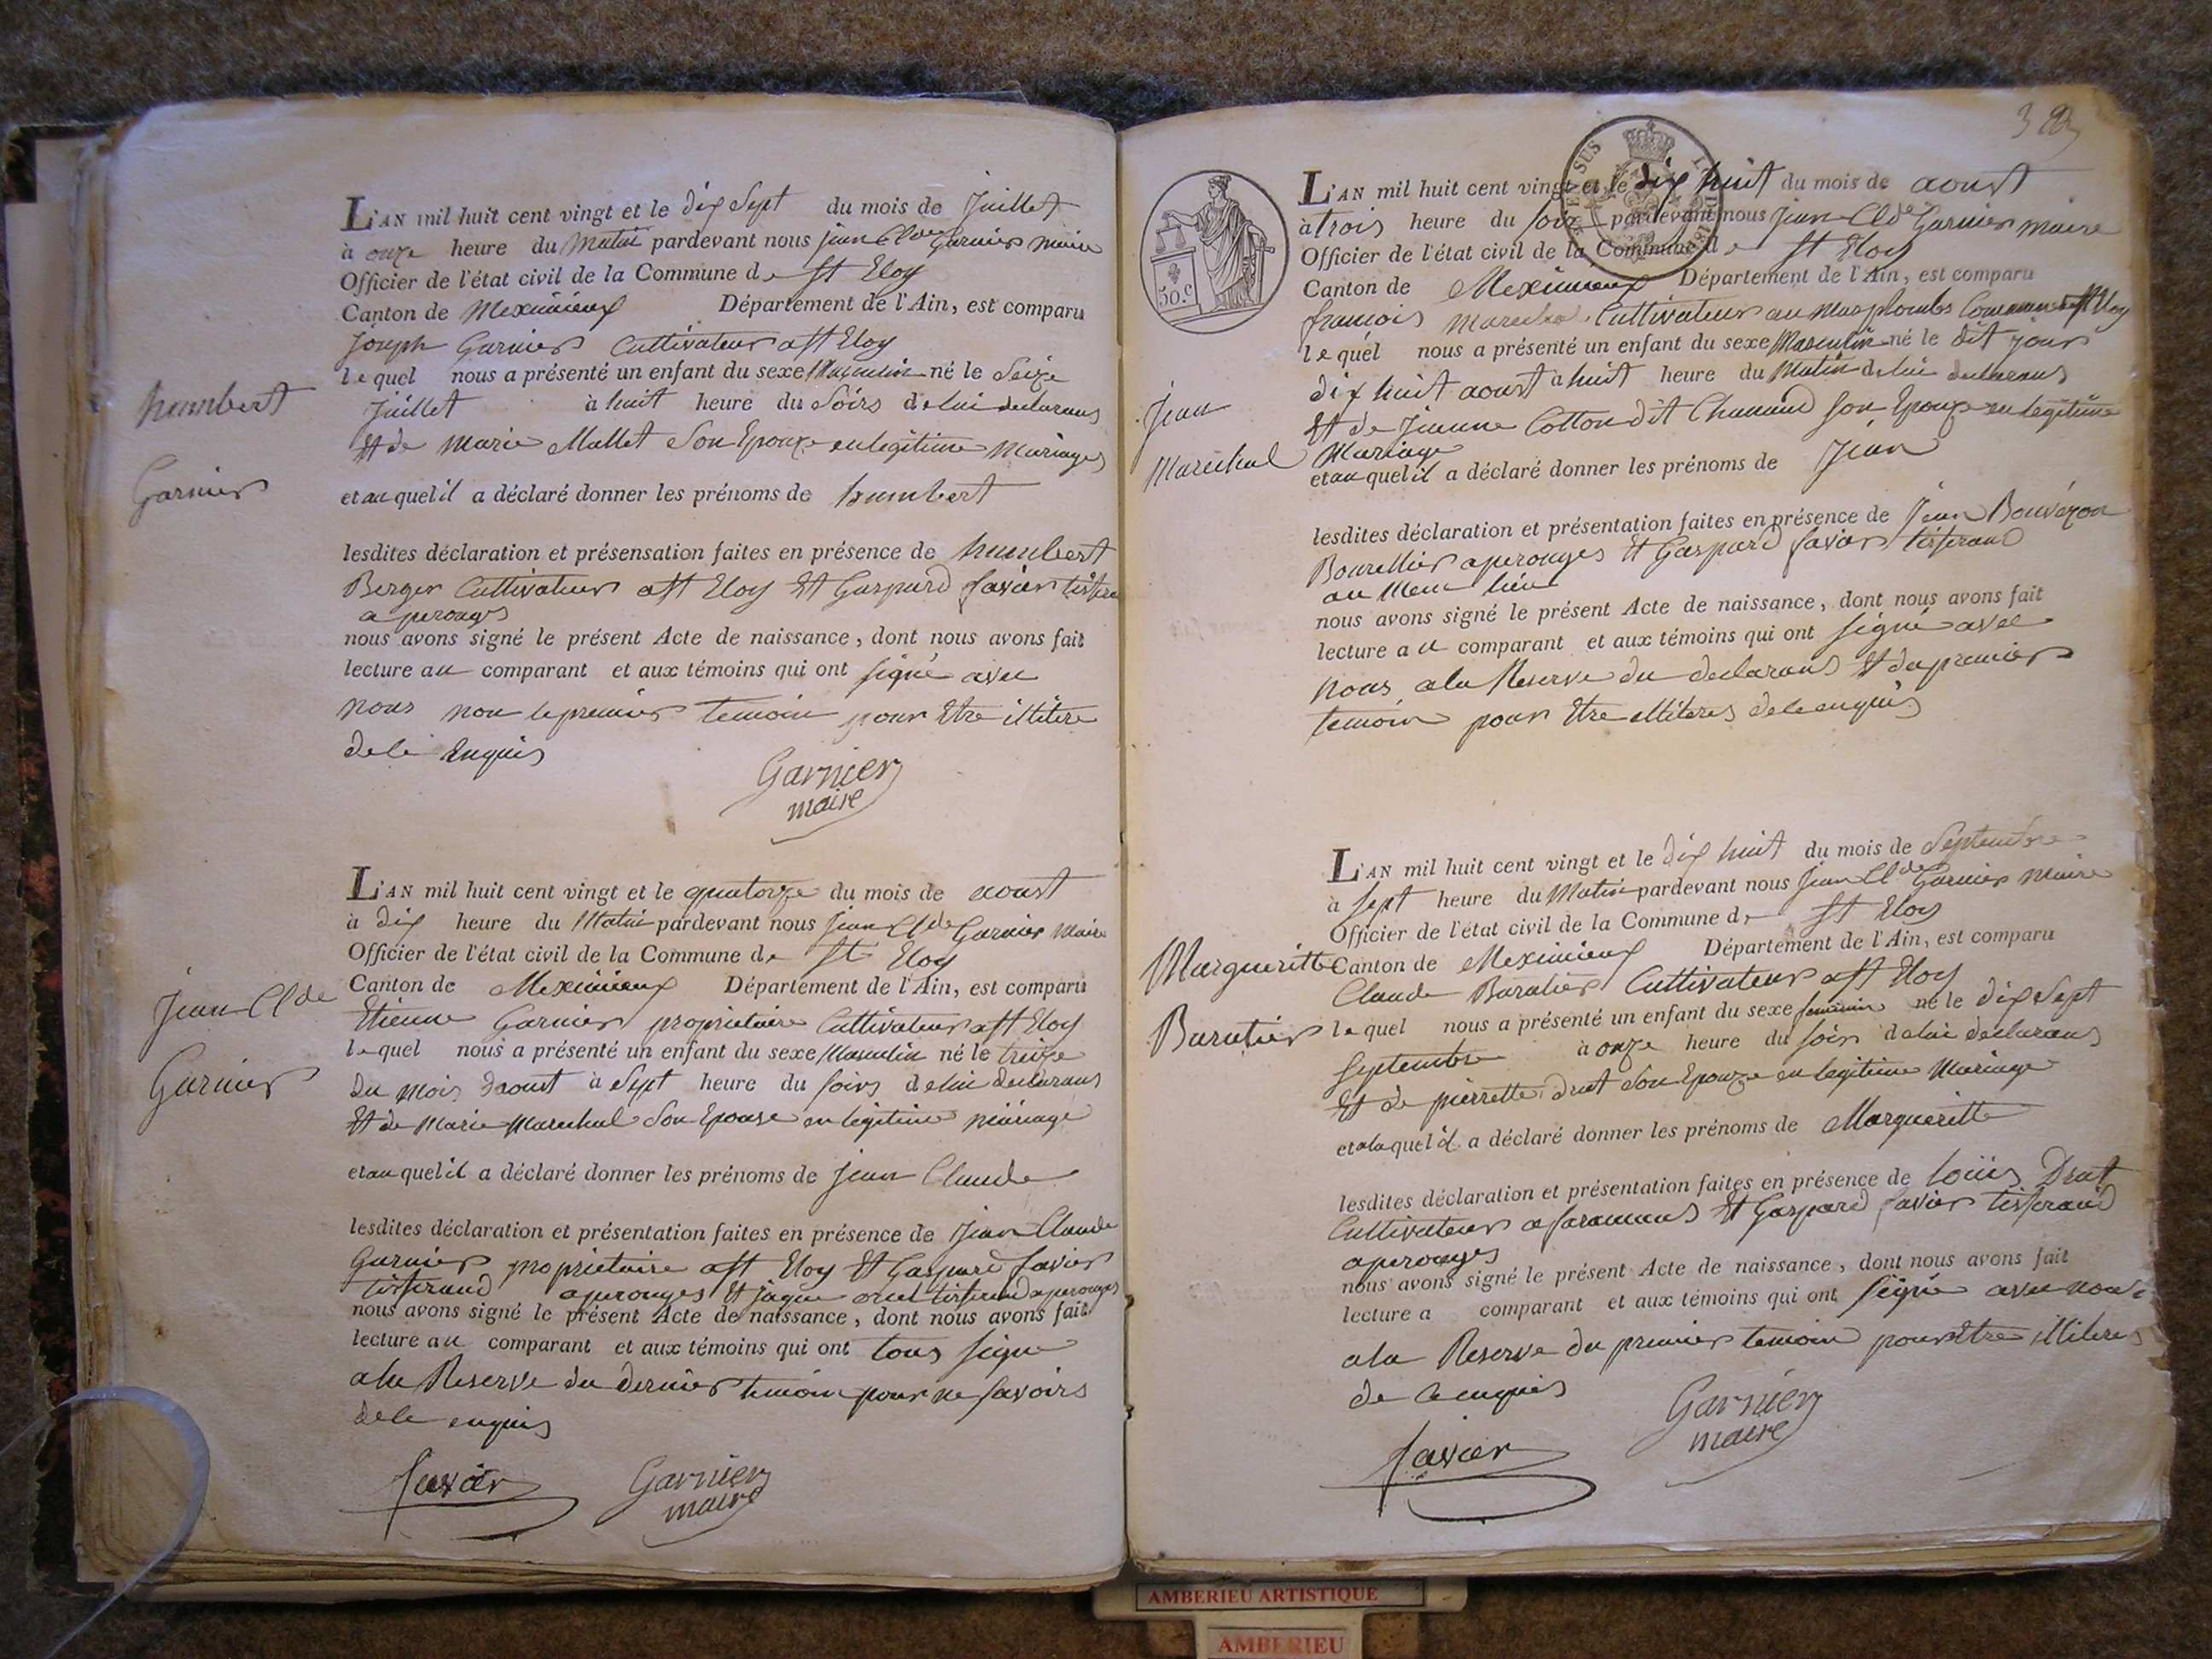 humbert
Garnier
L'AN mil huit cent vingt et le dix Sept du mois de Juillet
à onze heure du matin pardevant nous jean Clde Garnier maire
Officier de l'état civil de la Commune de St Eloy
Canton de Meximieux Département de l'Ain, est comparu
Joseph Garnier Cultivateur a St Eloy
lequel nous a présenté un enfant du sexe Masculin né le Seize
Juillet à huit heure du Soirs de lui declarans
Et de Marie Mallet Son Epouze en legitime Mariages
et au quel il a déclaré donner les prénoms de humbert
lesdites déclaration et présensation faites en présence de humbert
Berger Cultivateur a St Eloy Et Gaspard favier tissera
a perouges
nous avons signé le présent Acte de naissance, dont nous avons fait
lecture au comparant et aux témoins qui ont signé avec
nous non le premier temoin pour Etre illitere
de le Enquis
Garnier
maire
Jean Clde
Garnier
L'AN mil huit cent vingt et le quatorze du mois de aoust
à dix heure du Matin pardevant nous jean Clde Garnier Maire
Officier de l'état civil de la Commune de St Eloy
Canton de Meximieux Département de l'Ain, est comparu
Etienne Garnier proprietaire Cultivateur a St Eloy
lequel nous a présenté un enfant du sexe Masculin né le treize
du mois daoust à Sept heure du soirs de lui declarans
Et de Marie Marechal Son Epouse en legitime mariage
et au quel il a déclaré donner les prénoms de jean Claude
lesdites déclaration et présentation faites en présence de jean Claude
Garnier proprietaire a St Eloy Et Gaspard favier
tisserand a perouges Et jaque tisserand a perouges
nous avons signé le présent Acte de naissance, dont nous avons fait
lecture au comparant et aux témoins qui ont tous signe
a la Reserve du dernier temoin pour ne savoirs
de le enquis
favier Garnier
maire
383
50.c
L'AN mil huit cent vingt et le dix huit du mois de aoust
à trois heure du soir pardevant nous jean Clde Garnier maire
Officier de l'état civil de la Commune de St Eloy
Canton de Meximieux Département de l'Ain, est comparu
françois Marechal Cultivateur au Mas plombs Commune St Eloy
lequel nous a présenté un enfant du sexe Masculin né le dit jour
dix huit aoust à huit heure du Matin de lui declarans
Et de jeanne Cotton dit Chanaud son Epouze en legitime
Mariage
Jean
Marechal
et au quel il a déclaré donner les prénoms de Jean
lesdites déclaration et présentation faites en présence de Jean Bouvezon
Bourellier a perouges Et Gaspard favier tisserand
au Meme lieu
nous avons signé le présent Acte de naissance, dont nous avons fait
lecture au comparant et aux témoins qui ont signé avec
nous a la Reserve du declarans Et du premier
temoin pour Etre illiteres de le enquis
Margueritte
Baratier
L'AN mil huit cent vingt et le dix huit du mois de Septembre
à sept heure du Matin pardevant nous jean Clde Garnier maire
Officier de l'état civil de la Commune de St Eloy
Canton de Meximieux Département de l'Ain, est comparu
Claude Baratier Cultivateur a St Eloy
lequel nous a présenté un enfant du sexe feminin né le dix Sept
Septembre à onze heure du soir de lui declarans
Et de pierrette drut Son Epouze en legitime Mariage
et a la quel il a déclaré donner les prénoms de Margueritte
lesdites déclaration et présentation faites en présence de loüis Drut
Cultivateur a faramans Et Gaspard favier tisserand
a perouges
nous avons signé le présent Acte de naissance, dont nous avons fait
lecture a comparant et aux témoins qui ont signé avec nous
a la Reserve du premier temoin pour Etre illiteres
de le enquis
Garnier
maire
favier
AMBERIEU ARTISTIQUE
AMBERIEU